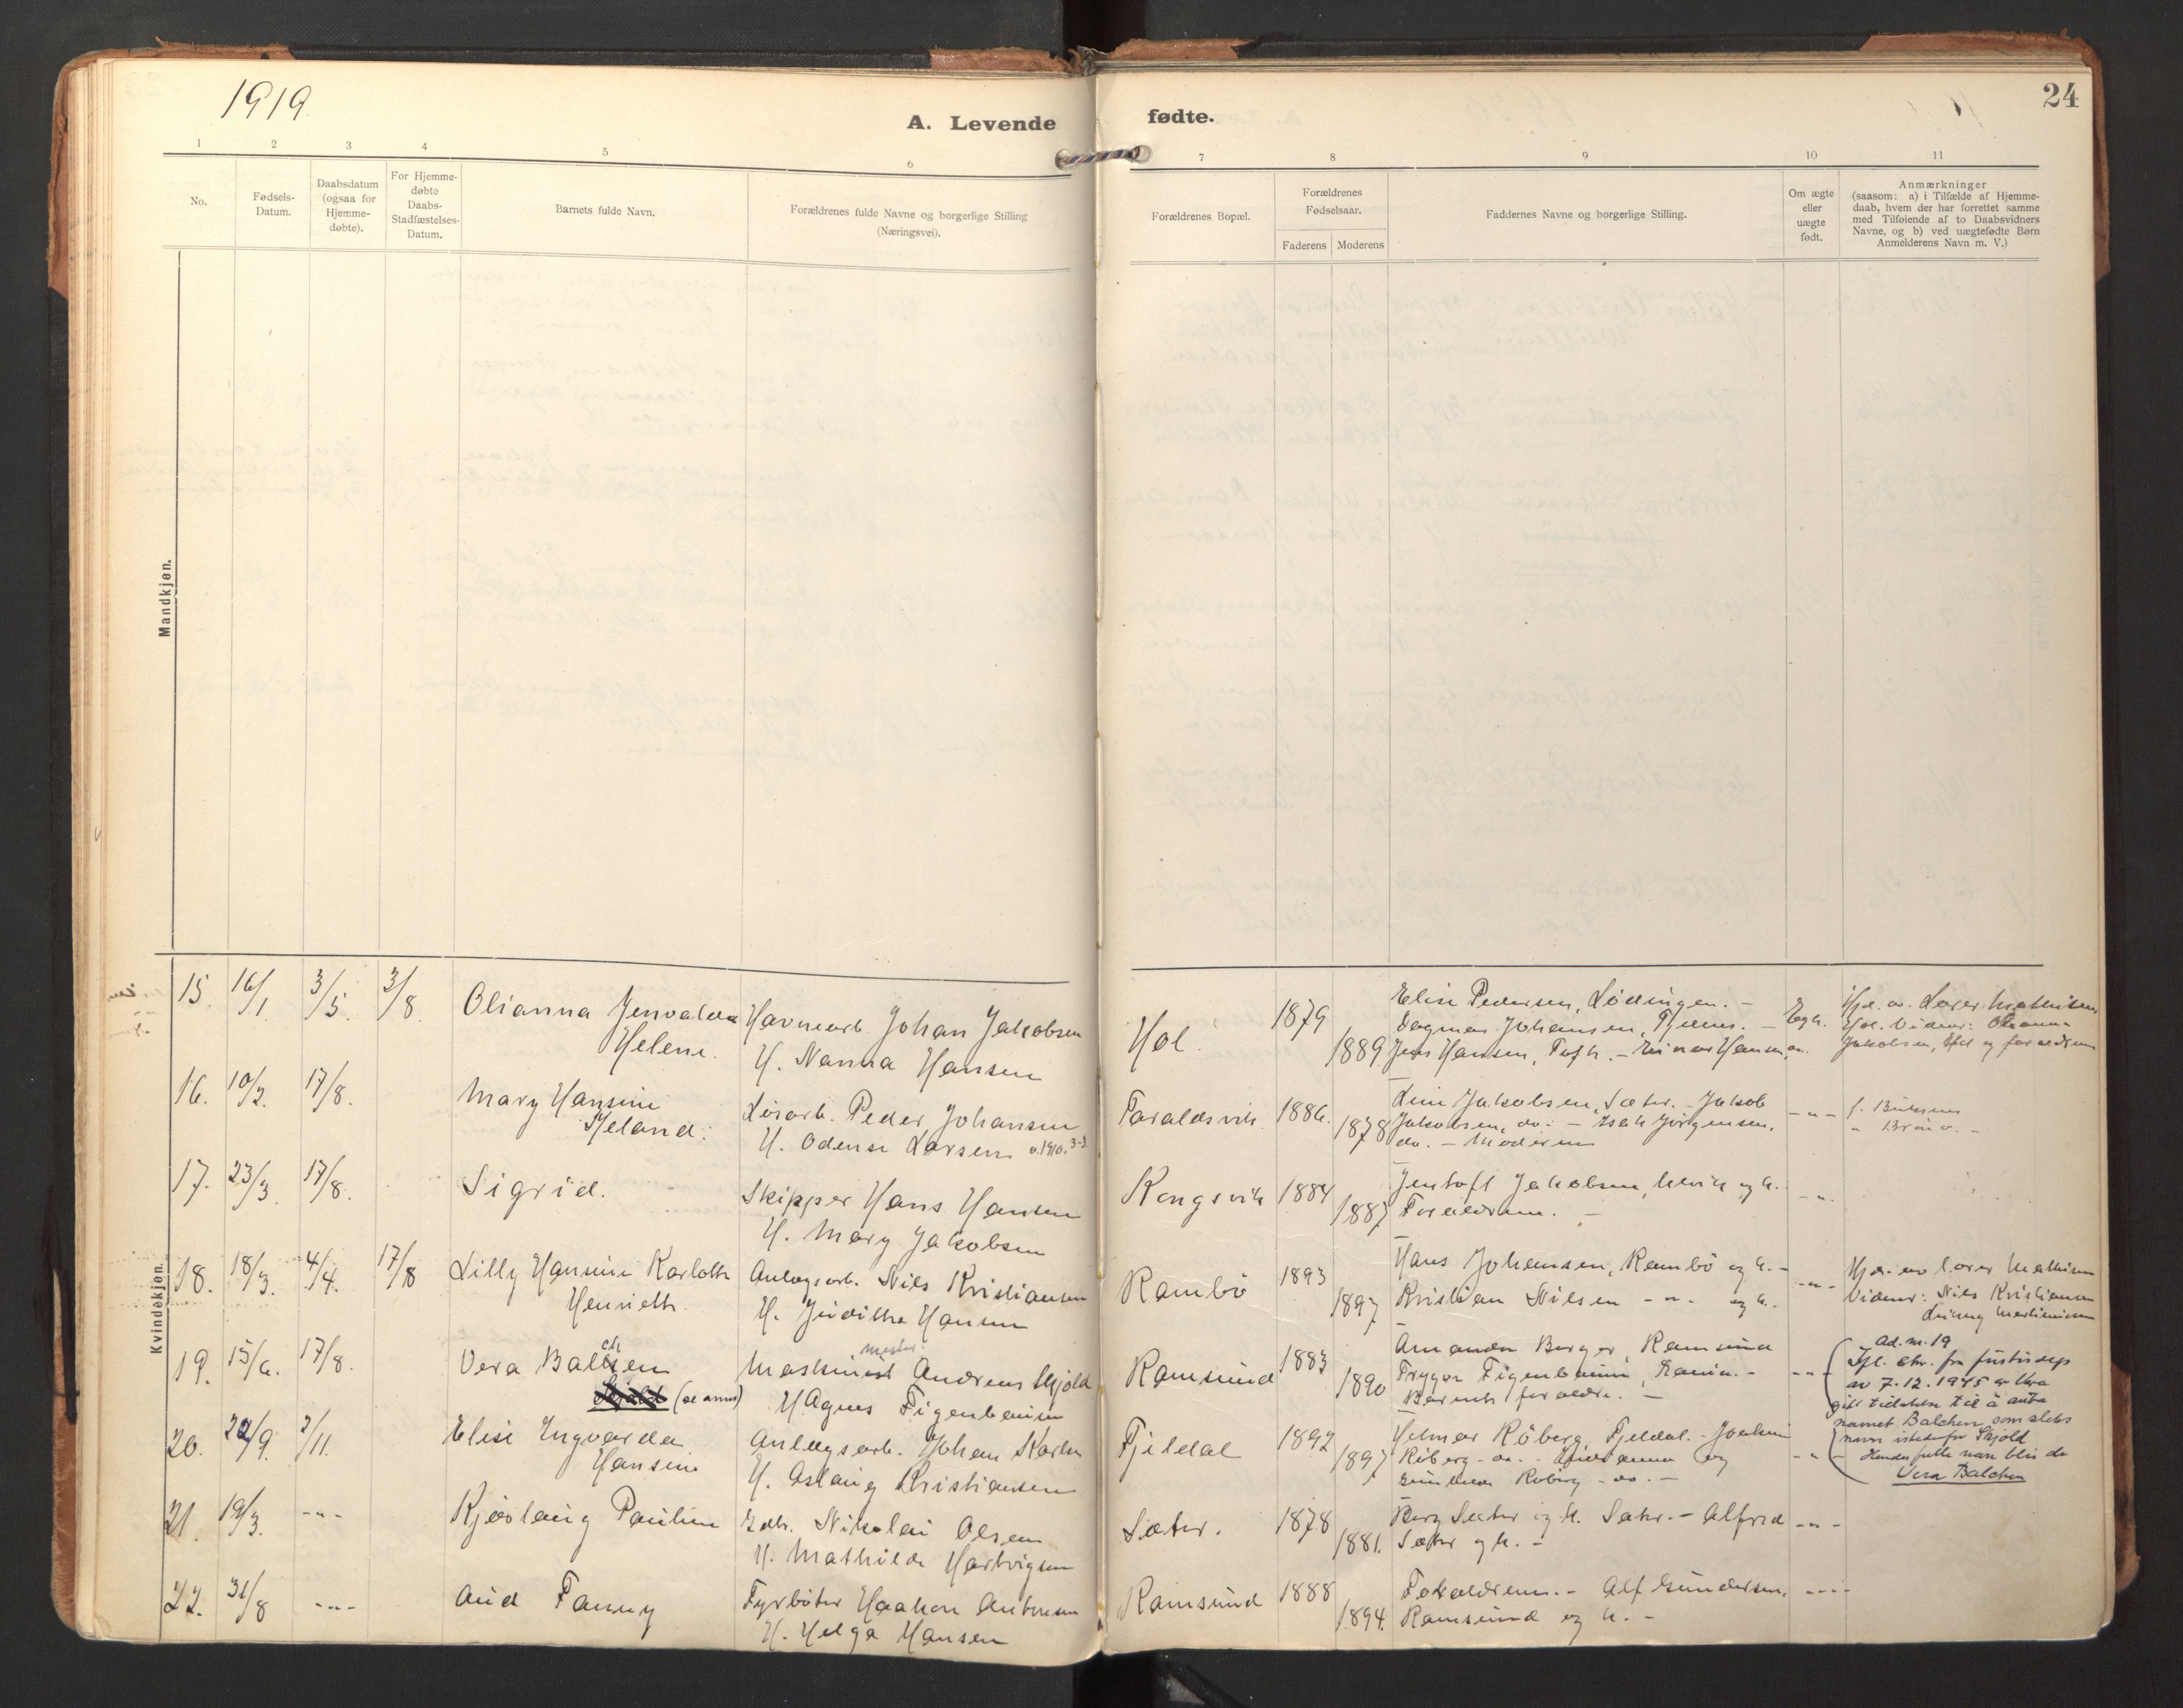 1919
A. Levende
fødte.
24
1 2 3 4 5 6
7 8 9 10 11
No.
Fødsels-
Datum.
Daabsdatum
(ogsaa for
Hjemme-
døbte).
For Hjemme-
døbte
Daabs-
Stadfæstelses-
Datum.
Barnets fulde Navn.
Forældrenes fulde Navne og borgerlige Stilling
(Næringsvei).
Forældrenes Bopæl.
Forældrenes
Fødselsaar.
Faderens Moderens
Faddernes Navne og borgerlige Stilling.
Om ægte
eller
uægte
født.
Anmærkninger
(saasom: a) i Tilfælde af Hjemme-
daab, hvem der har forrettet samme
med Tilføiende af to Daabsvidners
Navne, og b) ved uægtefødte Børn
Anmelderens Navn m. V.)
Mandkjøn.
Kvindekjøn.
15. 16/1. 3/5. 3/8.
Olianna
Helene.
Havnearb. Johan Jakobsen
H. Nanna Hansen
Hol.
1879
1889.
Elise Pedersen, Lødingen. -
Dagmar Johansen,
Jens Hansen,
16. 10/2. 17/8.
Mary Hansine
Løsarb. Peder Johansen
H. Odense Larsen
Taraldsvik.
1886.
1878
Jakobsen, Sæter. - Jakob
Jakobsen, do. - Isak Jørgensen,
do. - Moderen
17. 23/3. 17/8.
Sigrid.
Skipper Hans Hansen
H. Mary Jakobsen
Kongsvik
1884
1887
Jentoft Jakobsen,
Forældrene. -
18. 18/3. 4/4. 17/8
Lilly Hansine Karlotte
Henriette
Anlægsarb. Nils Kristiansen
H. Judithe Hansen
Rambö
1893
1897
Hans Johansen, Rambö og h. -
Kristian Nilsen - " - og h.
Vidner: Nils Kristiansen
19. 15/6. 17/8.
Vera Balchen
Skjold (se anm)
mester
Maskinist Andreas Skjold
H. Agnes Figenbaum
Ramsund
1883
1890
Amanda Berger, Ramsund
Trygve Figenbaum, Ramsu. -
Barnets forældre. -
Ad. nr. 19
Ifl. skr. fra justisdep
av 7.12.1945 er Vera
gitt tillatelse til å anta
navnet Balchen som slekts
navn istedenfor Skjold
Hendes fulle navn blir da
Vera Balchen
20. 22/9. 2/11.
Elise Ingvarda
Hansine
Anlægsarb. Johan Karlsen
H. Aslaug Kristiansen
Fjeldal
1892
1897
Helmer Röberg, Fjeldal. -
21. 19/3. - " -
Kjøslaug Pauline
Nikolai Olsen
H. Mathilde Hartvigsen
Sæter.
1878
1881.
Berg Sæter og h. Sæter. - Alfred
Sæter og h. -
22. 31/8 - " -
Aud Fanny
Fyrbøter Haakon Antonsen
H. Helga Hansen
Ramsund
1888
1894.
Forældrene. - Alf Gundersen,
Ramsund og h. -